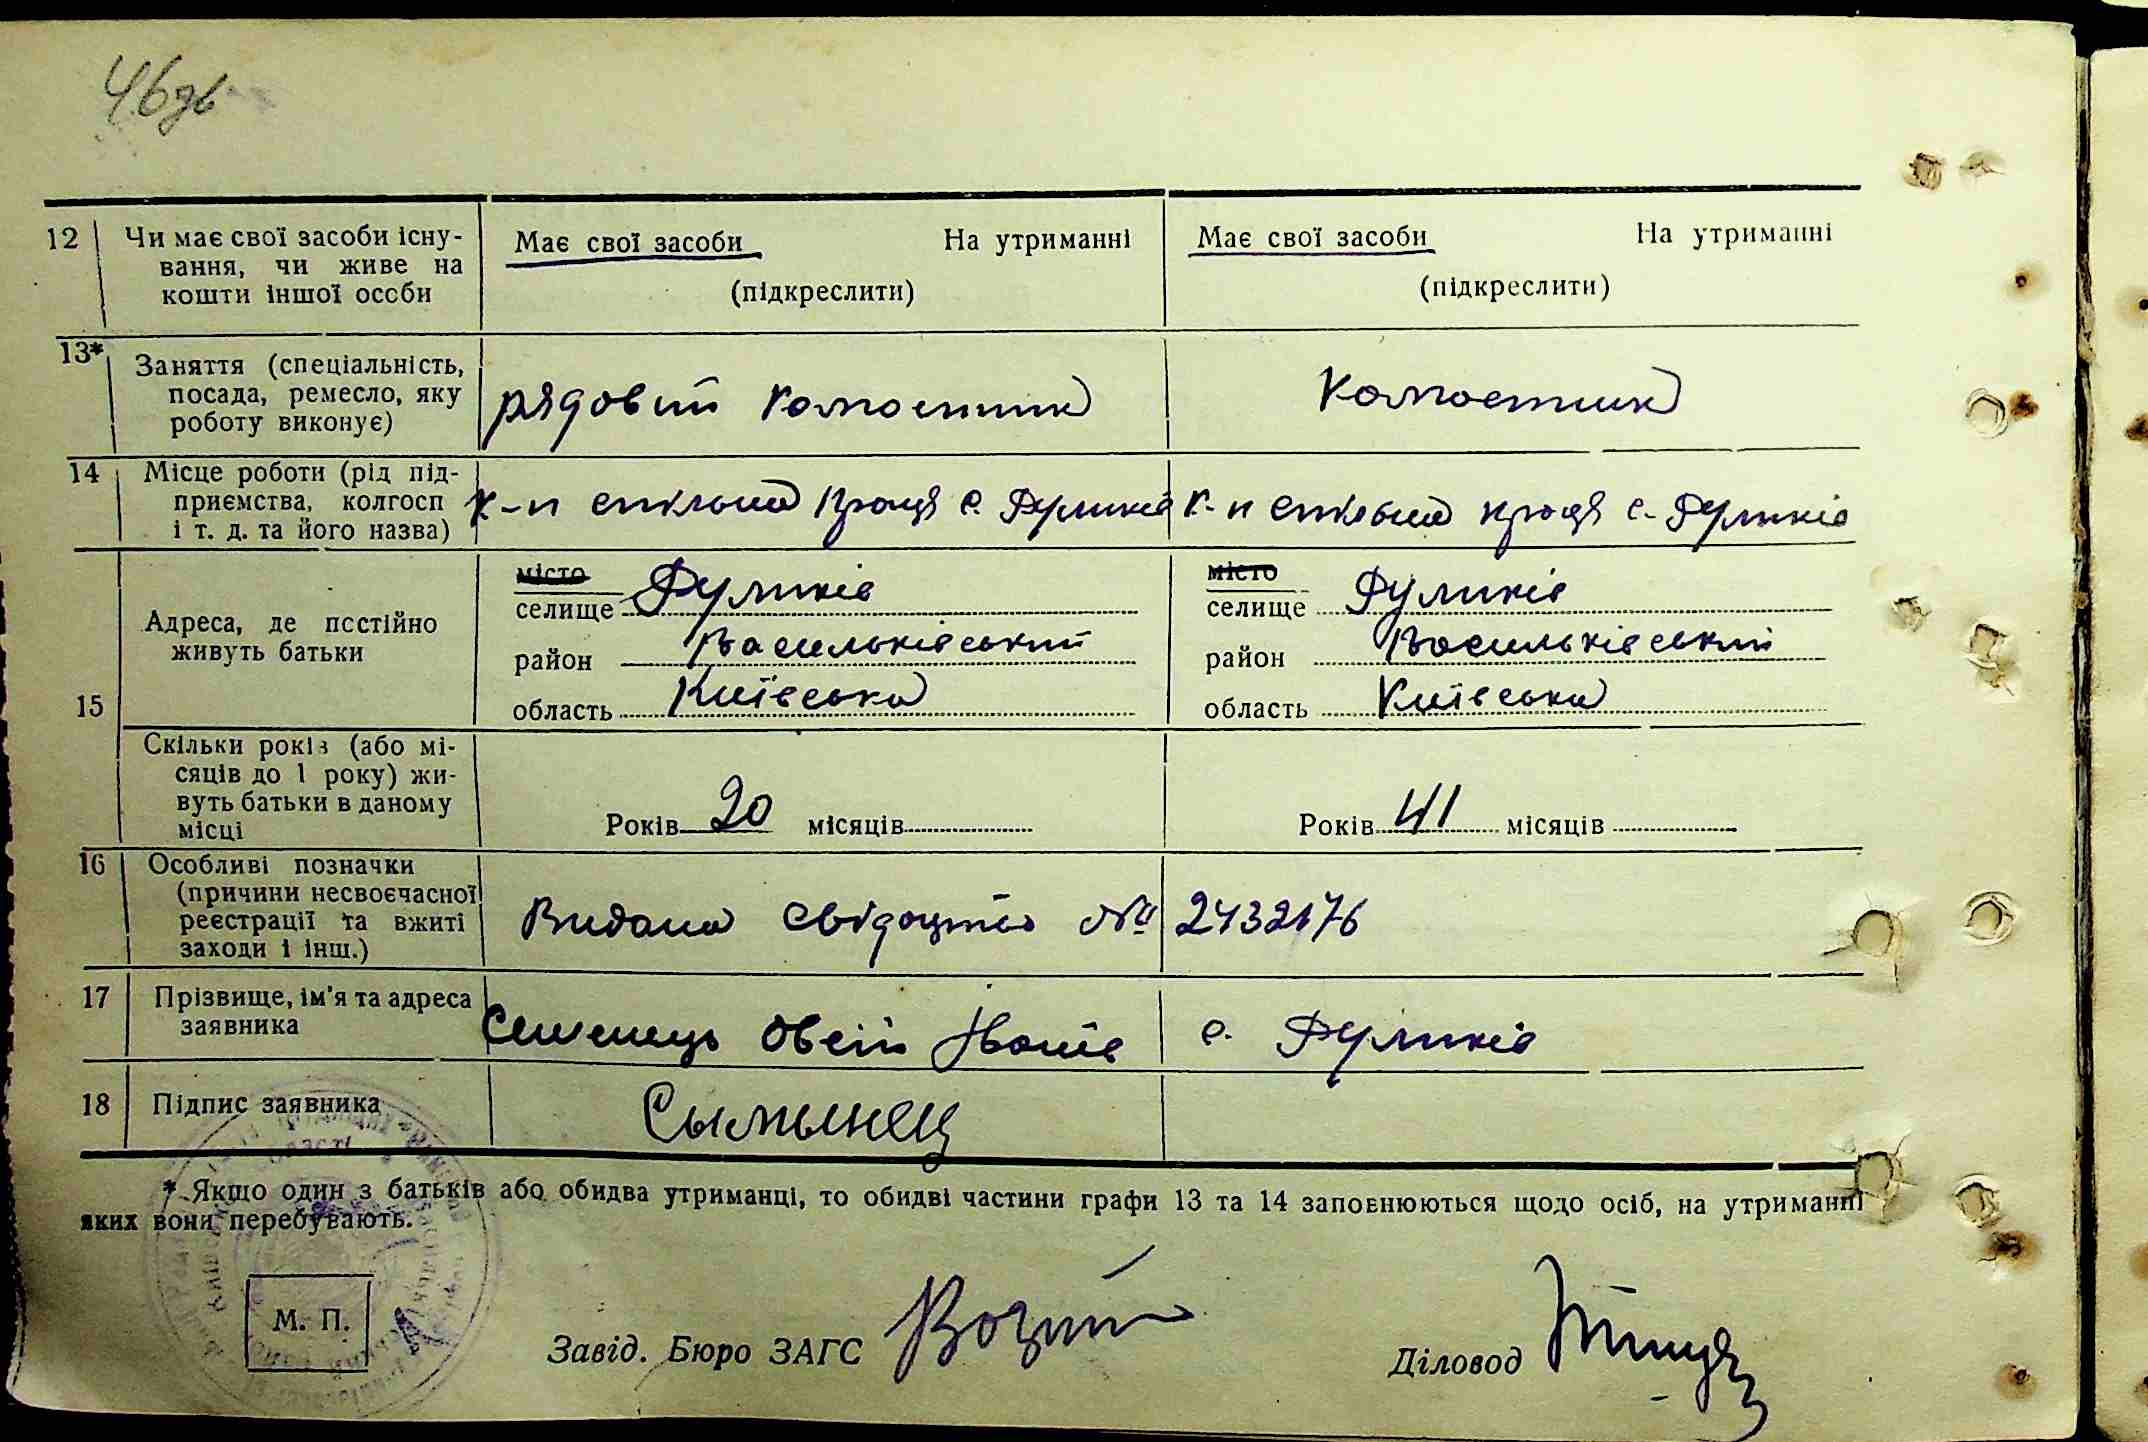 46 зв
12 Чи має свої засоби існу- Має свої засоби На утриманні Має свої засоби На утриманні
вання, чи живе на
кошти іншої особи (підкреслити) (підкреслити)
13* Заняття (спеціальність,
посада, ремесло, яку рядовий колгоспник колгоспник
роботу виконує)
14 Місце роботи (рід під-
приємства, колгосп к-п спільна праця с. Дуликів к-п спільна праця с. Дуликів
і т. д. та його назва)
15 Адреса, де постійно
живуть батьки
місто
селище Дуликів
район Васильківський
область Київська
місто
селище Дуликів
район Васильківський
область Київська
Скільки років (або мі-
сяців до 1 року) жи-
вуть батьки в даному
місці
Років 20 місяців Років 41 місяців
16 Особливі позначки
(причини несвоєчасної
реєстрації та вжиті Видано свідоцтво № 2432176
заходи і інш.)
17 Прізвище, ім'я та адреса
заявника Семенець Овсій Іванів с. Дуликів
18 Підпис заявника Сымынец
* Якщо один з батьків або обидва утриманці, то обидві частини графи 13 та 14 заповнюються щодо осіб, на утриманні
яких вони перебувають.
М. П.
Завід. Бюро ЗАГС
Діловод